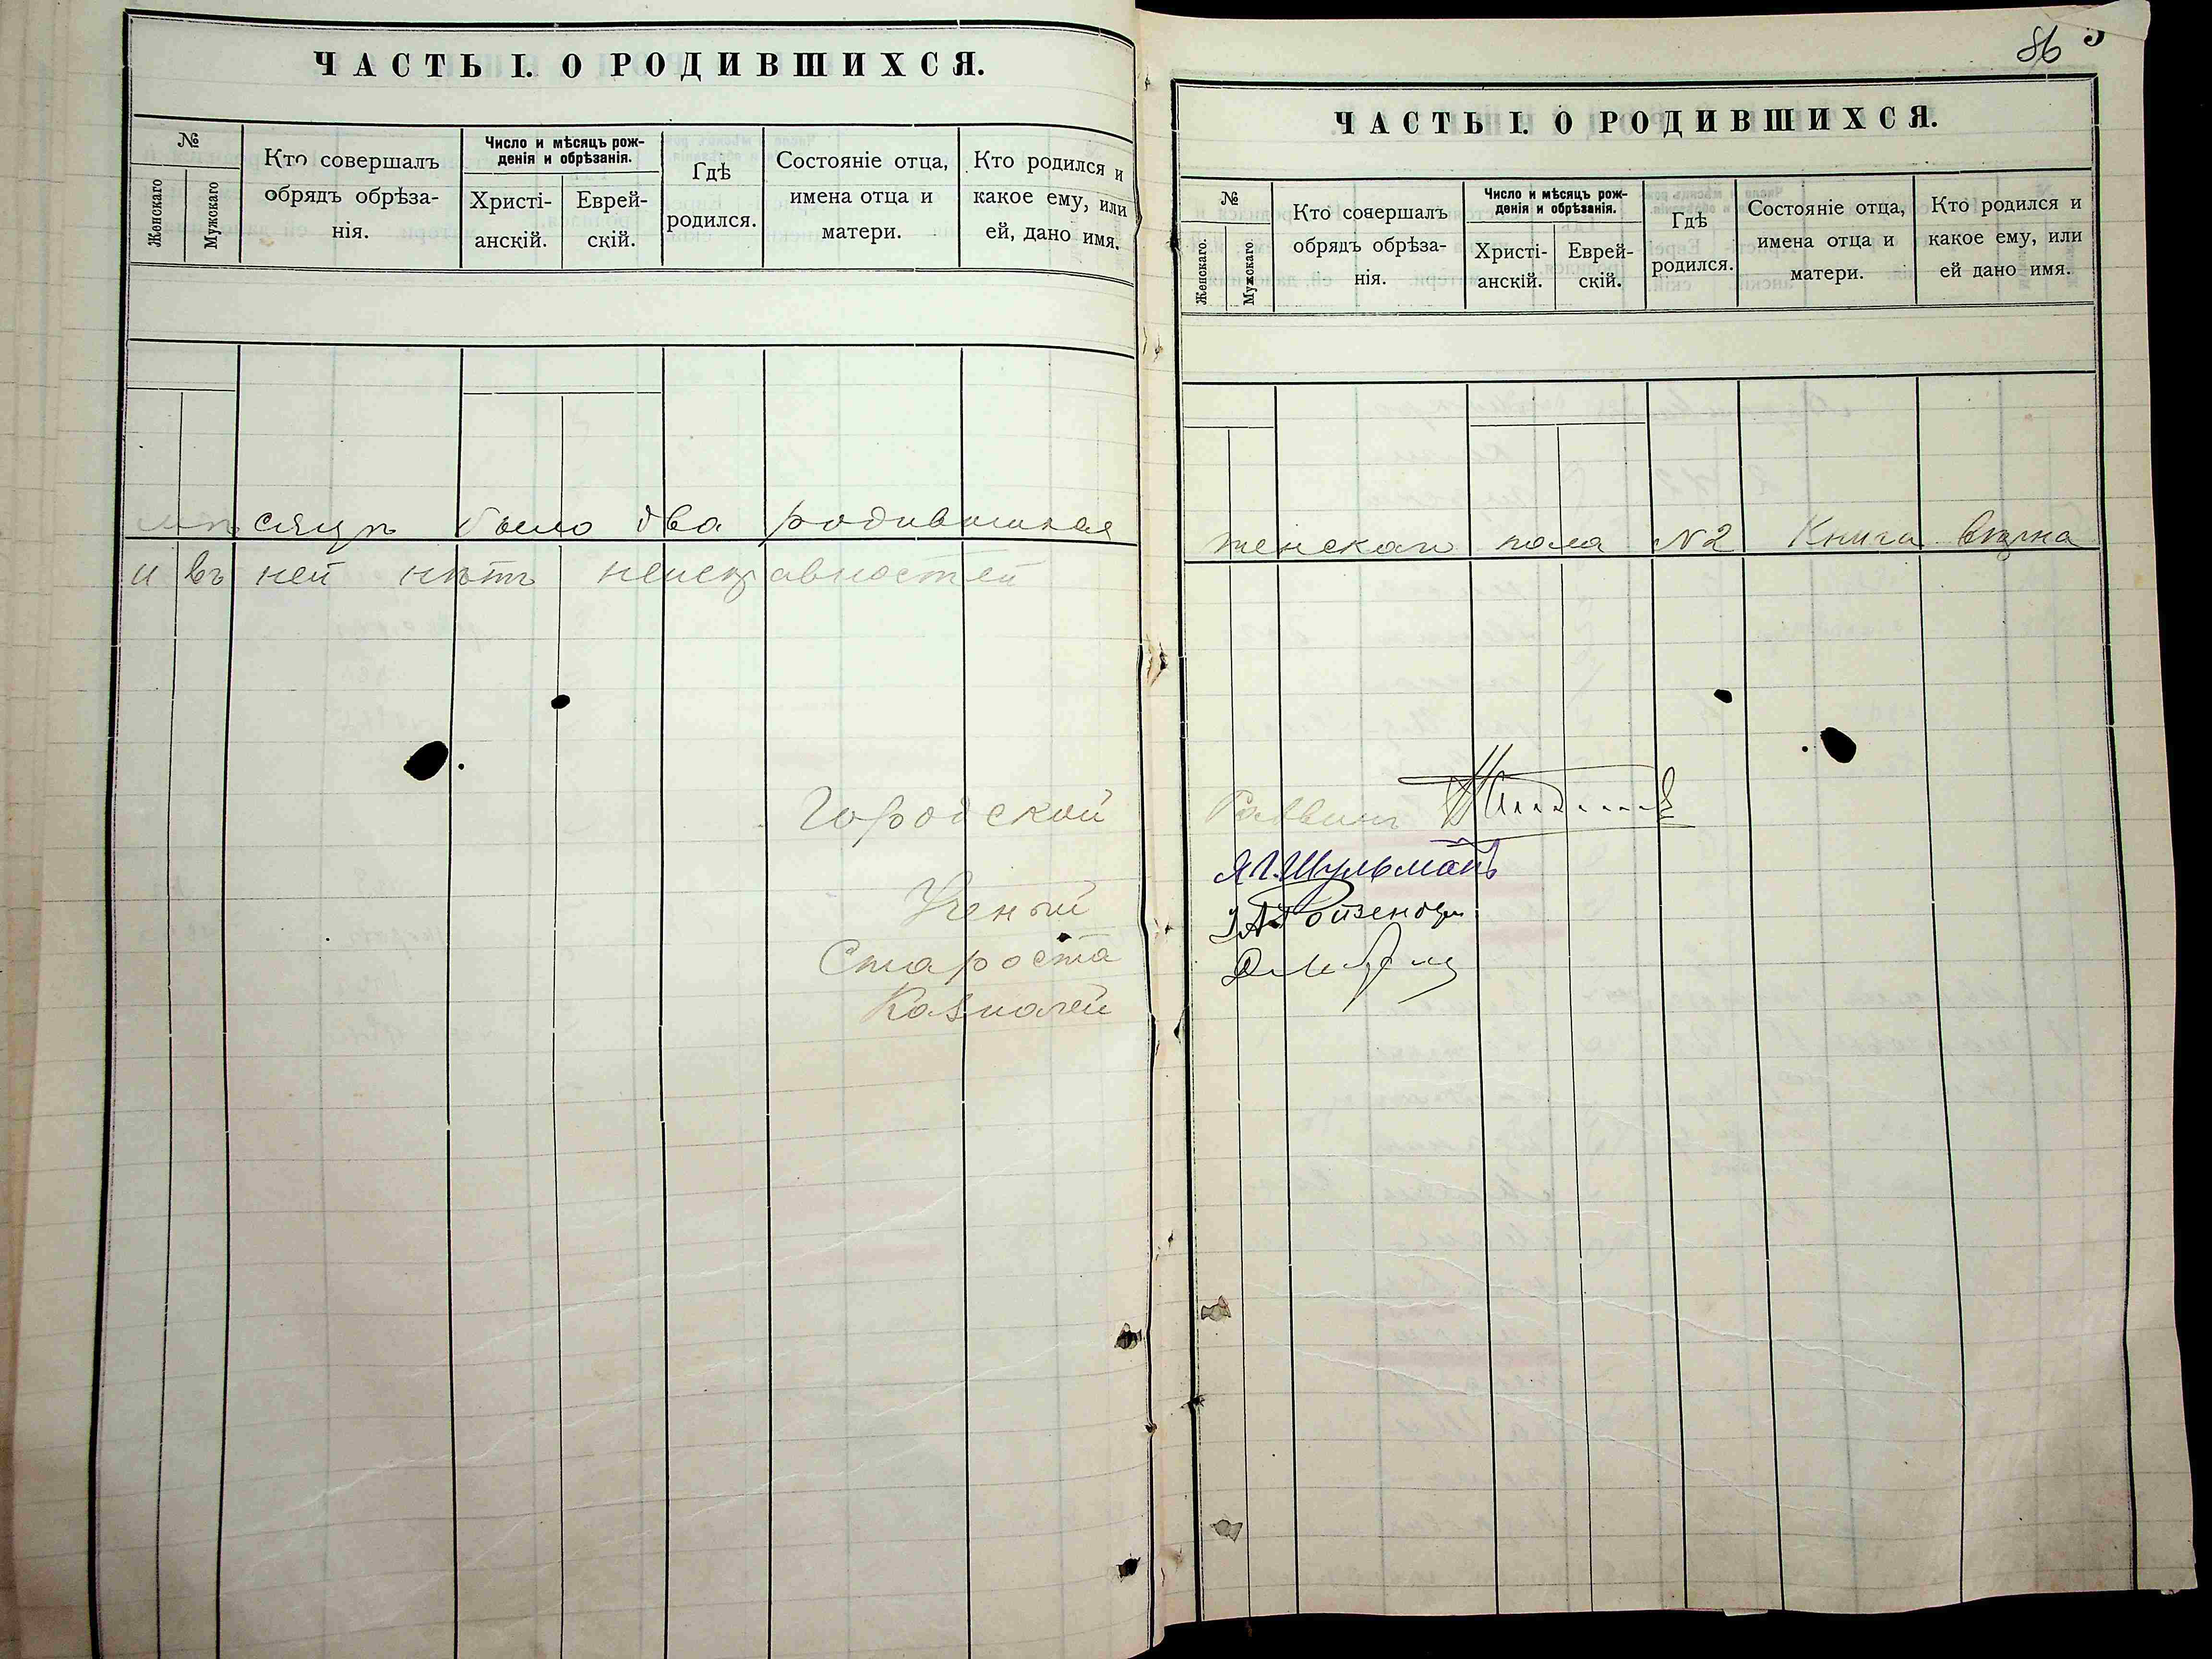 ЧАСТЬ I. О РОДИВШИХСЯ.
№
Женскаго
Мужскаго
Кто совершалъ
обрядъ обрѣза-
нія.
Число и мѣсяцъ рож-
денія и обрѣзанія.
Христі-
анскій.
Еврей-
скій.
Гдѣ
родился.
Состояніе отца,
имена отца и
матери.
Кто родился и
какое ему, или
ей, дано имя.
мѣсяцъ было два родившихся
и въ ней нѣтъ неисправностей
Городской
Ученый
Староста
Казначей
86
ЧАСТЬ I. О РОДИВШИХСЯ.
№
Женскаго.
Мужскаго.
Кто совершалъ
обрядъ обрѣза-
нія.
Число и мѣсяцъ рож-
денія и обрѣзанія.
Христі-
анскій.
Еврей-
скій.
Гдѣ
родился.
Состояніе отца,
имена отца и
матери.
Кто родился и
какое ему, или
ей дано имя.
женскаго пола №2 Книга вѣрна
Раввинъ
Шульманъ